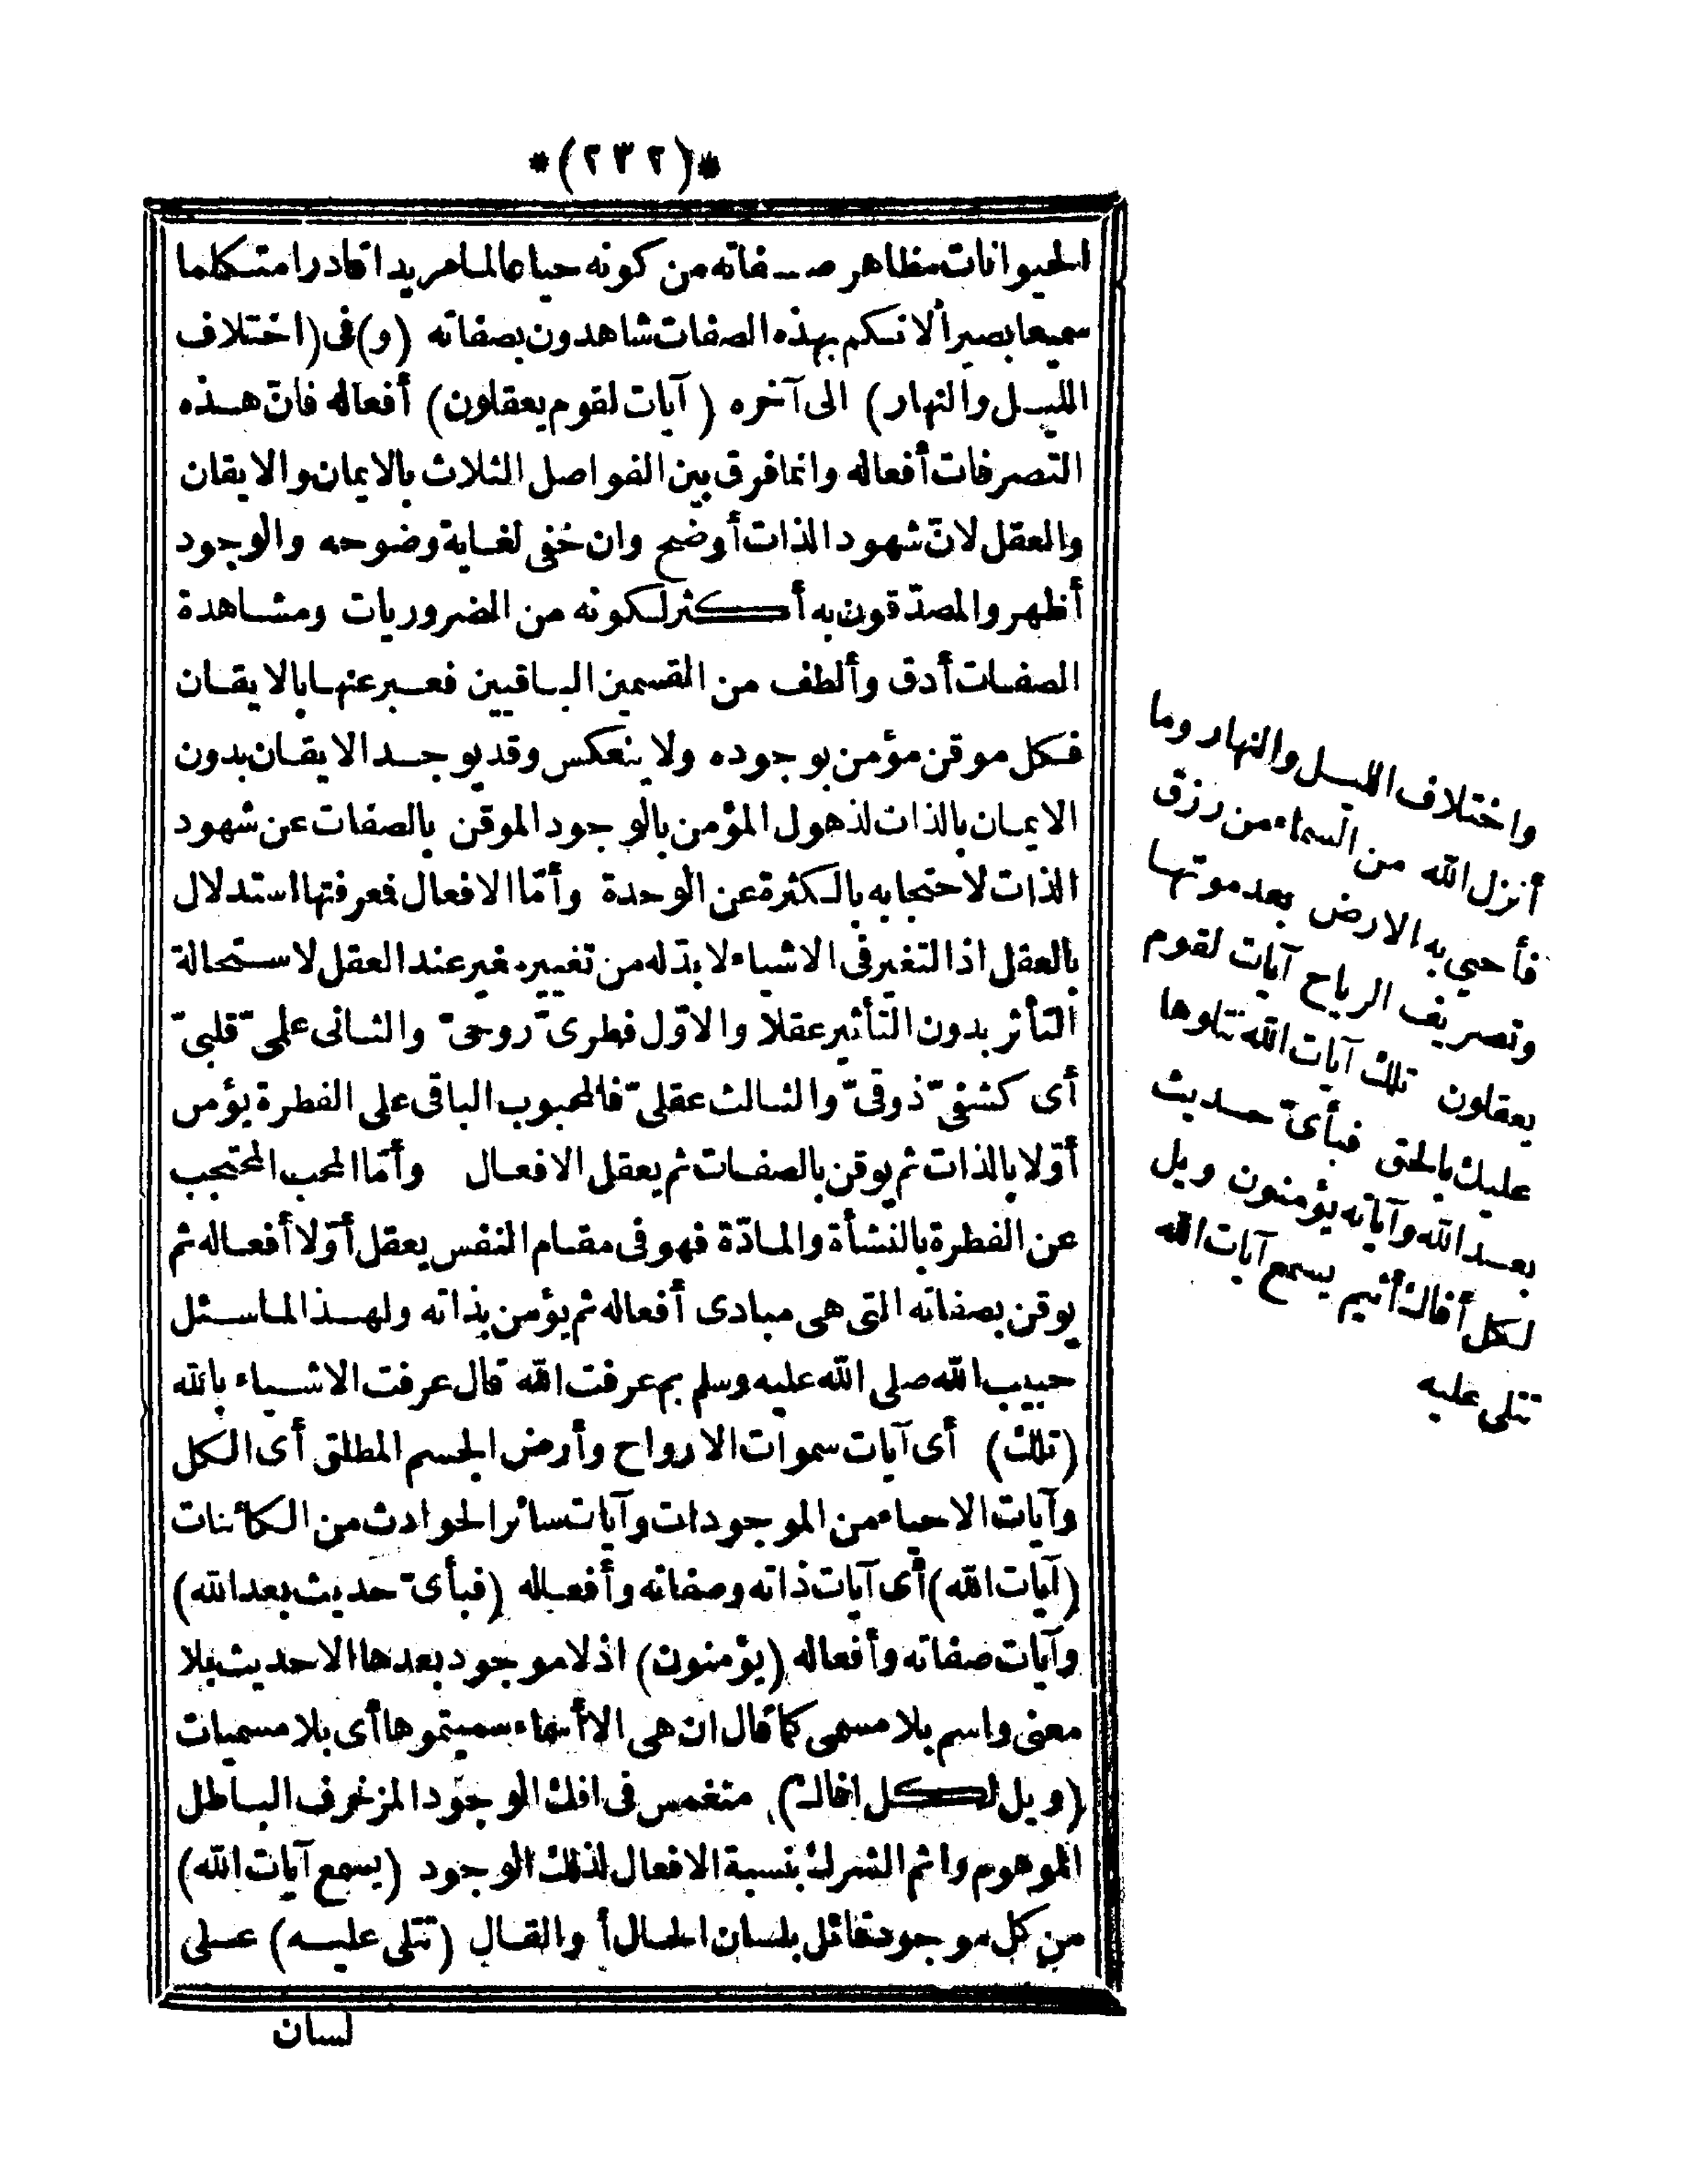 *(٢٣٢)*
الحيوانات مظاهر صفاته من كونه حيا عالما مريدا قادرا متكلما
سميعا بصيرا لانكم بهذه الصفات شاهدون بصفاته (و) فى (اختلاف
الليل والنهار) الى آخره (آيات لقوم يعقلون) أفعاله فانّ هذه
التصرفات أفعاله وانما فرق بين الفواصل الثلاث بالايمان والايقان
والعقل لانّ شهود الذات أوضح وان خفى لغاية وضوحه والوجود
أظهر والمصدّقون به أكثر لكونه من الضروريات ومشاهدة
الصفات أدق وألطف من القسمين الباقيين فعبر عنها بالايقان
فكل موقن مؤمن بوجوده ولا ينعكس وقد يوجد الايقان بدون
الايمان بالذات لذهول المؤمن بالوجود الموقن بالصفات عن شهود
الذات لاحتجابه بالكثرة عن الوحدة وأمّا الافعال فعرفتها استدلال
بالعقل اذ التغير فى الاشياء لا بدّ له من تغيير مغير عند العقل لاستحالة
التأثر بدون التأثير عقلا والاوّل فطرىّ روحىّ والثانى علمىّ قلبىّ
أى كشفىّ ذوقىّ والثالث عقلىّ فالمحبوب الباقى على الفطرة يؤمن
أوّلا بالذات ثم يوقن بالصفات ثم يعقل الافعال وأمّا المحب المحتجب
عن الفطرة بالنشأة والمادّة فهو فى مقام النفس يعقل أوّلا أفعاله ثم
يوقن بصفاته التى هى مبادى أفعاله ثم يؤمن بذاته ولهذا لما سئل
حبيب الله صلى الله عليه وسلم بم عرفت الله قال عرفت الاشياء بالله
(تلك) أى آيات سموات الارواح وأرض الجسم المطلق أى الكل
وآيات الاحياء من الموجودات وآيات سائر الحوادث من الكائنات
(آيات الله) أى آيات ذاته وصفاته وأفعاله (فبأىّ حديث بعد الله)
وآيات صفاته وأفعاله (يؤمنون) اذ لا موجود بعدها الا حديث بلا
معنى واسم بلا مسمى كما قال ان هى الا أسماء سميتموها أى بلا مسميات
(ويل لكل افاك) منغمس فى افك الوجود المزخرف الباطل
الموهوم واثم الشرك بنسبة الافعال لذلك الوجود (يسمع آيات الله)
من كل موجود قائل بلسان الحال أ والقال (تتلى عليه) على
لسان
واختلاف الليل والنهار وما
أنزل الله من السماء من رزق
فأحيى به الارض بعد موتها
وتصريف الرياح آيات لقوم
يعقلون تلك آيات الله نتلوها
عليك بالحق فبأىّ حديث
بعد الله وآياته يؤمنون ويل
لكل أفاك أثيم يسمع آيات الله
تتلى عليه